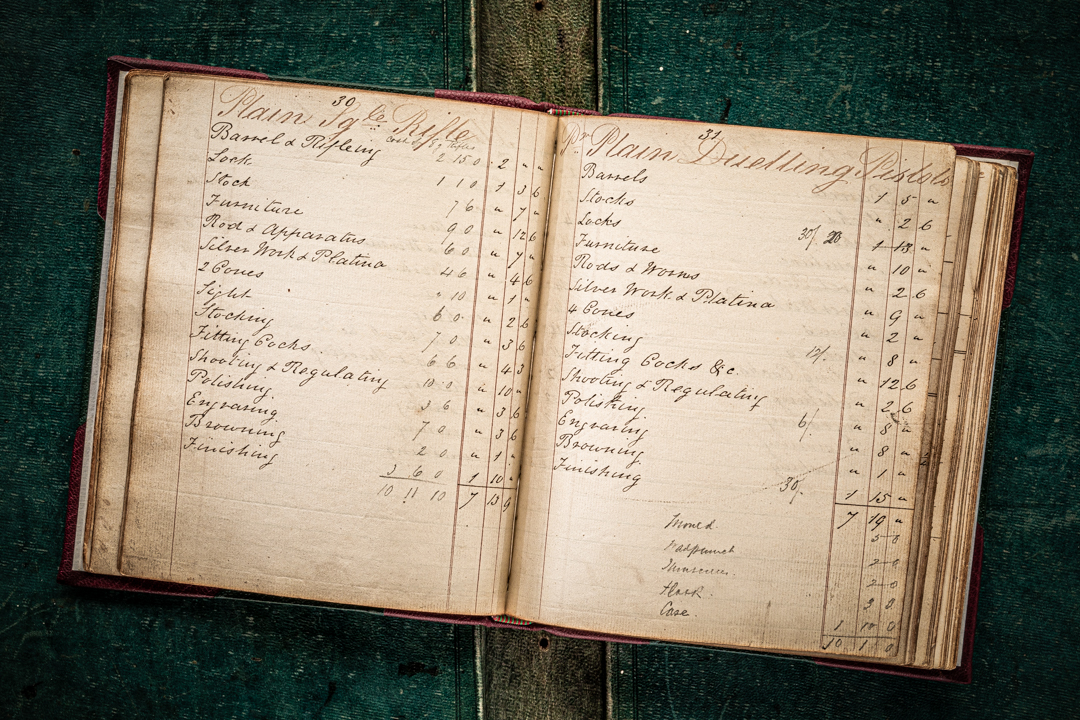 30
Plain Sgle Rifle
Barrel & Rifleing 2 15 0 2 " "
Lock 1 1 0 1 3 6
Stock 7 6 " 7 "
Furniture 9 0 " 12 6
Rod & Apparatus 6 0 " 7 "
Silver Work & Platina 4 6 " 4 6
2 Cones " 10 " 1 "
Sight 6 0 " 2 6
Stocking 7 0 " 3 6
Fitting Cocks 6 6 " 4 3
Shooting & Regulating 10 0 " 10 "
Polishing 3 6 " 3 6
Engraving 7 0 " 3 6
Browning 2 0 " 1 "
Finishing 3 6 0 1 10 "
10 11 10 7 13 9
31
Pr Plain Duelling Pistols
Barrels 1 5 "
Stocks " 2 6
Locks 30/ 20 1 13 "
Furniture " 10 "
Rods & Worms " 2 6
Silver Work & Platina " 9 "
4 Cones " 2 "
Stocking " 8 "
Fitting Cocks &c. 12/. " 12 6
Shooting & Regulating " 2 6
Polishing " 8 "
Engraving 6/. " 8 "
Browning " 1 "
Finishing 30/. 1 15 "
7 19 "
Mould 5 0
Wadpunch 2 0
2 0
Flask 3 0
Case 1 10 0
10 1 0